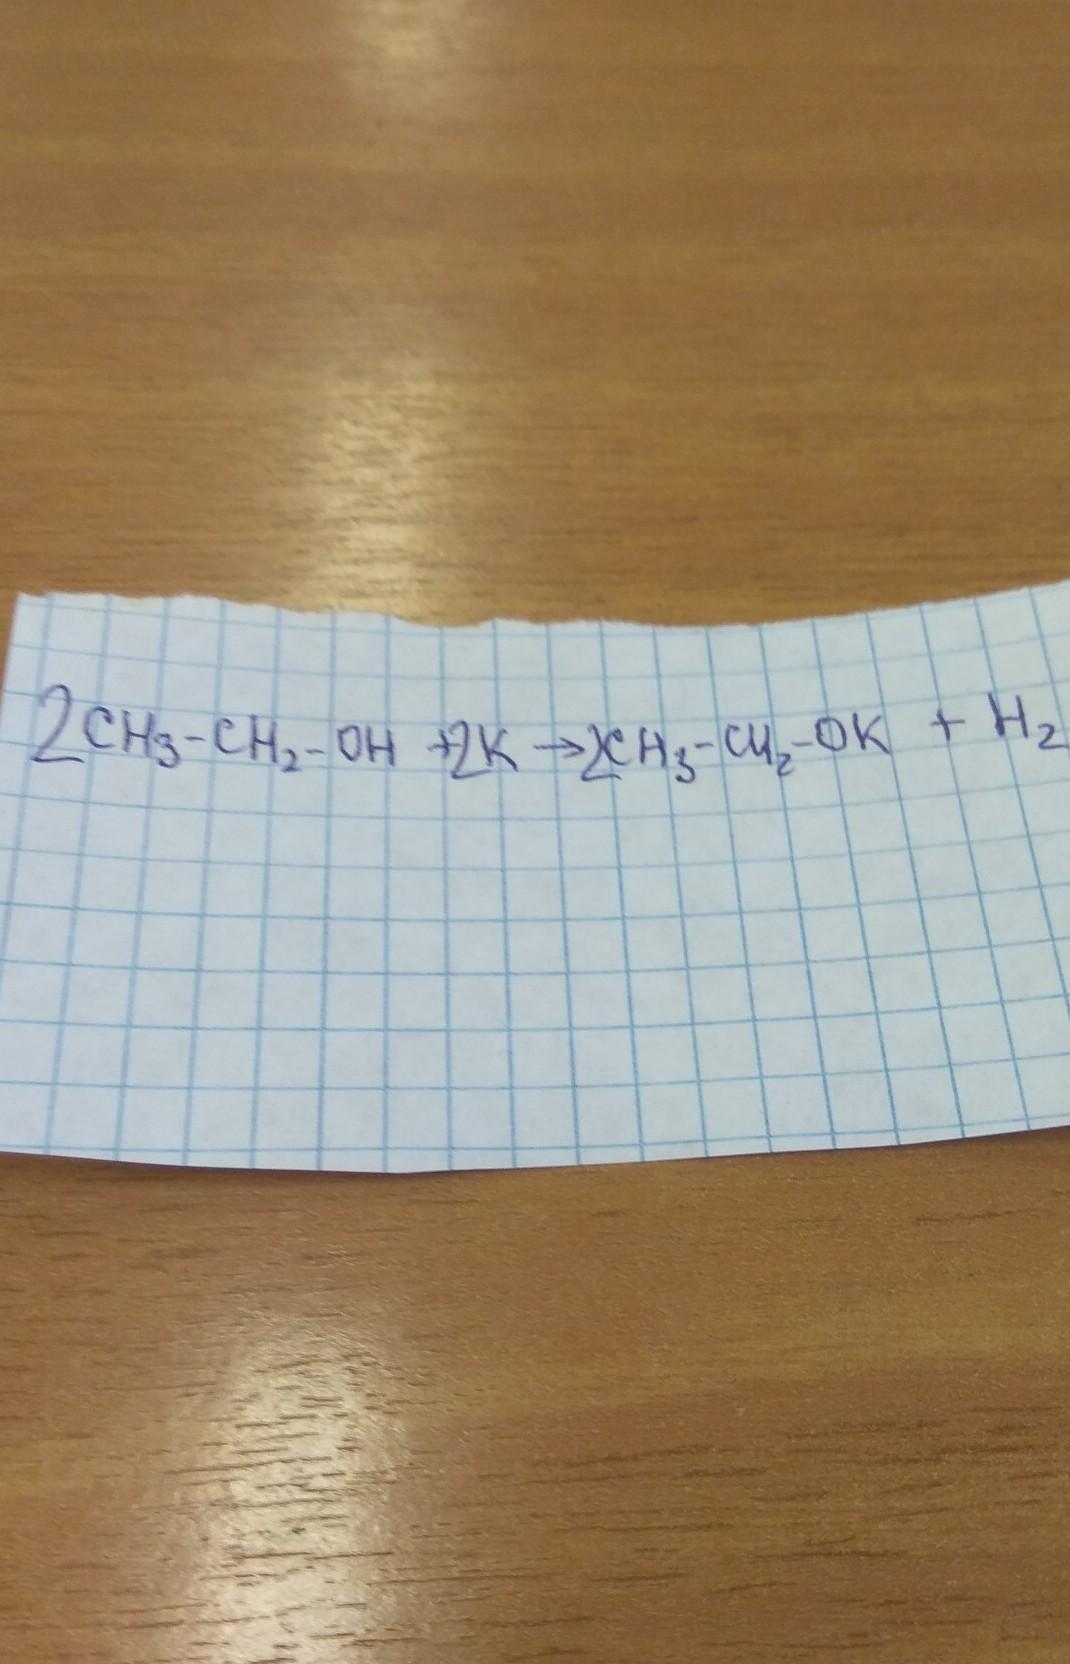 2CH₃-CH₂-OH +2K →2CH₃-CH₂-OK + H₂